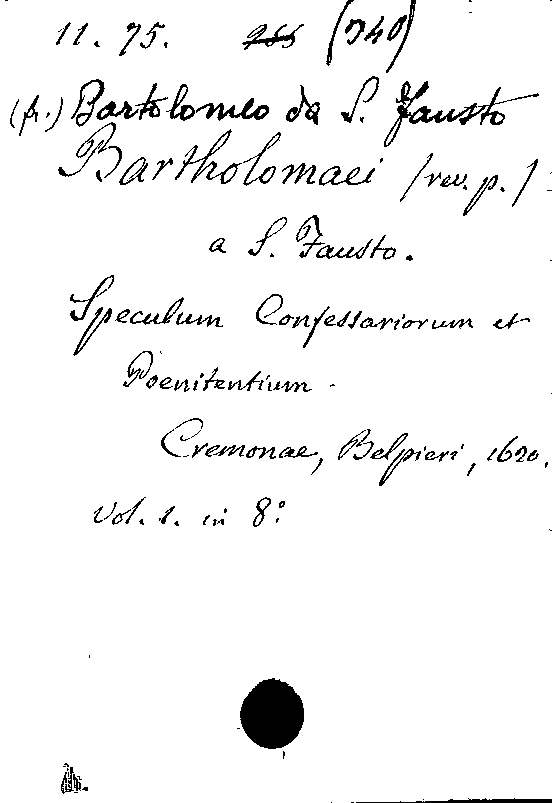 11. 75. (340)
(fr.) Bartolomeo da S. Fausto
Bartholomaei (rev. p.)
a S. Fausto.
Speculum Confessariorum et
Poenitentium.
Cremonae, Belpieri, 1620.
Vol. 1. in 8º